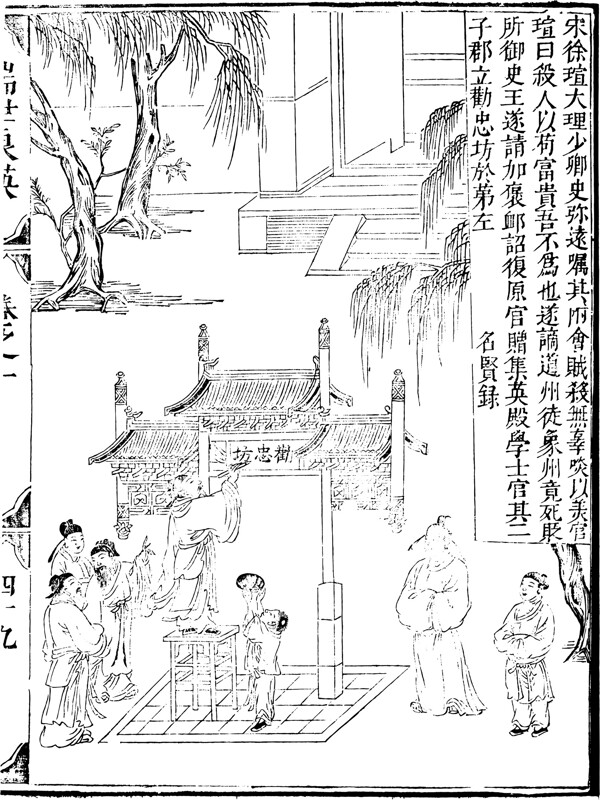 宋徐瑄大理少卿史弥遠嘱其附會賊殺無辜啖以美官
瑄曰殺人以苟富貴吾不爲也遂謫道州徙象州竟死貶
所御史王遂請加褒卹詔復原官贈集英殿學士官其二
子郡立勸忠坊於第左
名賢録
勸忠坊
瑞世良英
卷之一
四十九